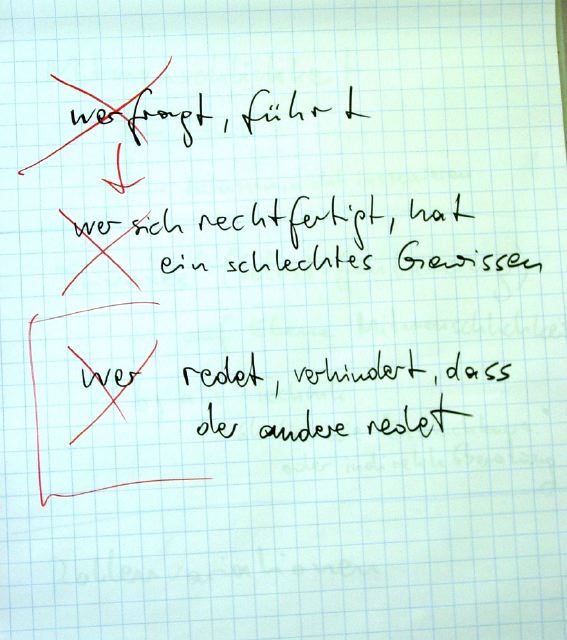 wer fragt, führt
wer sich rechtfertigt, hat
ein schlechtes Gewissen
wer redet, verhindert, dass
der andere redet